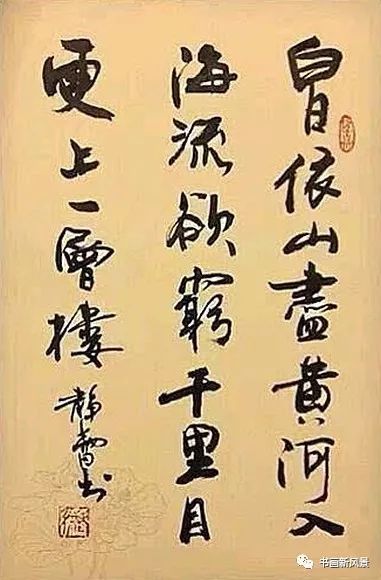 白日依山盡黄河入
海流欲窮千里目
更上一層樓 静雪书
书画新风景